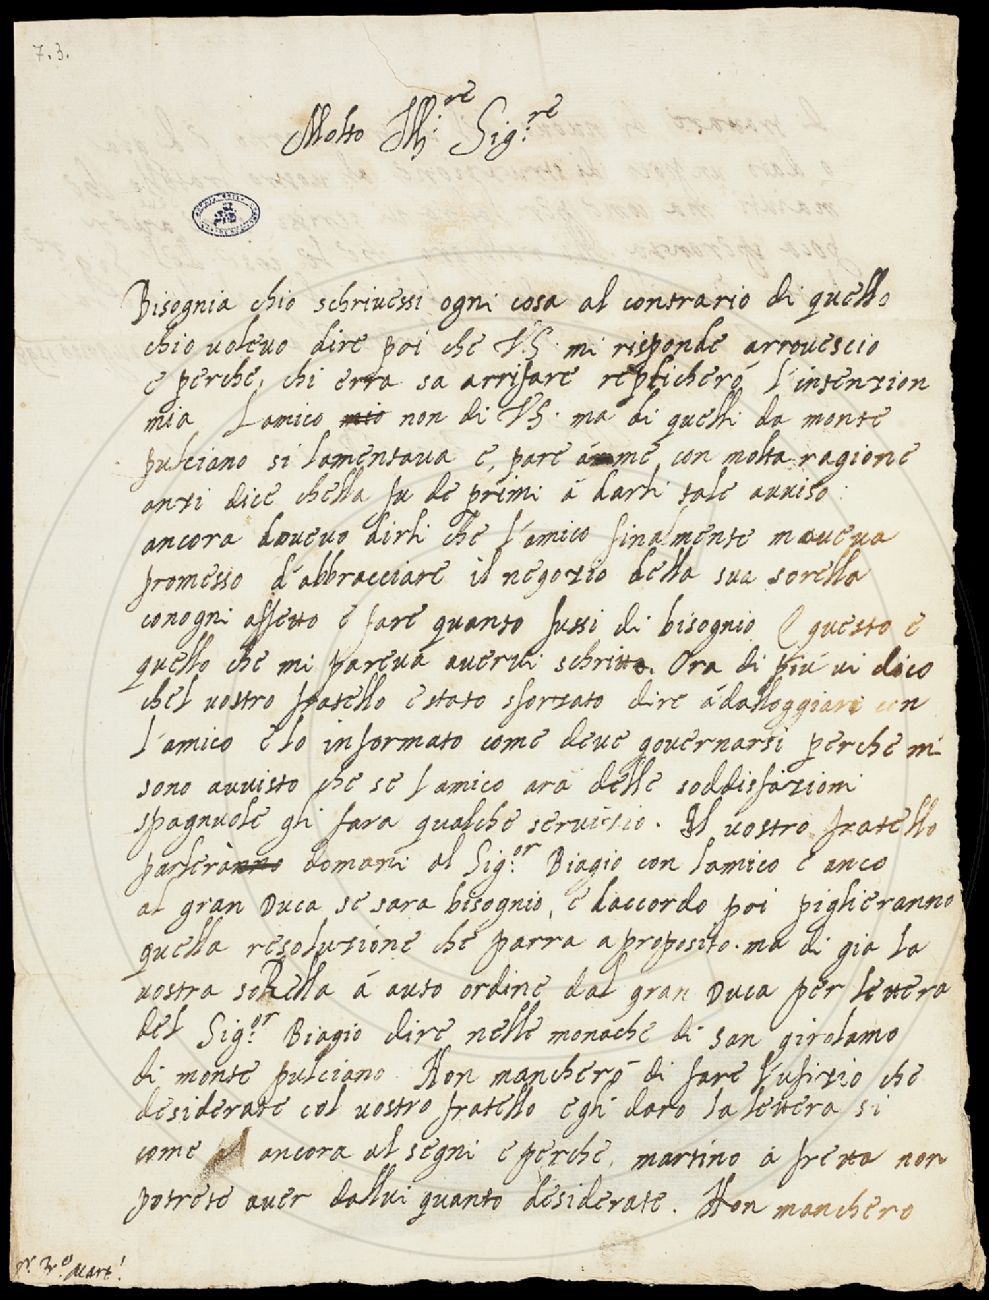 7.3.
Molto Ill:re Sig:re
Bisognia chio schrivessi ogni cosa al contrario di quello
chio volevo dire poi che V.S. mi risponde arrovescio
e perche, chi erra sa arrifare replicherò l'intenzion
mia Lamico mio non di V.S. ma di quelli da monte
pulciano si lamentava e, pare áme con molta ragione
anzi dice chella fu de primi á darli tale avviso:
ancora dovevo dirli che l'amico finalmente maveva
promesso d'abbracciare il negozio della sua sorella
conogni affetto e fare quanto fussi di bisognio E questo e
quello che mi pareva avervi schritto. Ora di piú vi dico
chel vostro fratello e stato sforzato dire ádalloggiare con
l'amico e lo informato come deve governarsi perche mi
sono avvisto che se l amico ara delle soddisfazioni
spagnuole gli fara qualche servitio. Il vostro fratello
parleranno domani al Sig:or Biagio con lamico e anco
al gran Duca se sara bisognio, e daccordo poi piglieranno
quella resoluzione che parra a proposito. ma di gia la
vostra soRella á auto ordine dal gran Duca per lettera
del Sig:or Biagio dire nelle monache di san girolamo
di monte pulciano. Non mancheró di fare l'ufizio che
desiderate col vostro fratello e gli daro la lettera si
come ancora al segni e perche, martino á fretta non
potrete aver dallui quanto desiderate. Non manchero